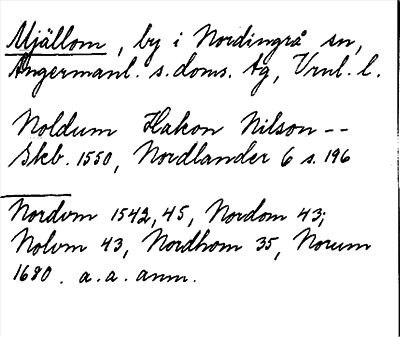 Mjällom, by i Nordingrå sn,
Ångermanl. s. doms. tg, Vrnl. l.
Noldum Hakon Nilson --
Skb. 1550, Nordlander 6 s. 196
Nordvm 1542, 45, Nordom 43;
Nolvm 43, Nordhom 35, Norum
1680. a. a. anm.